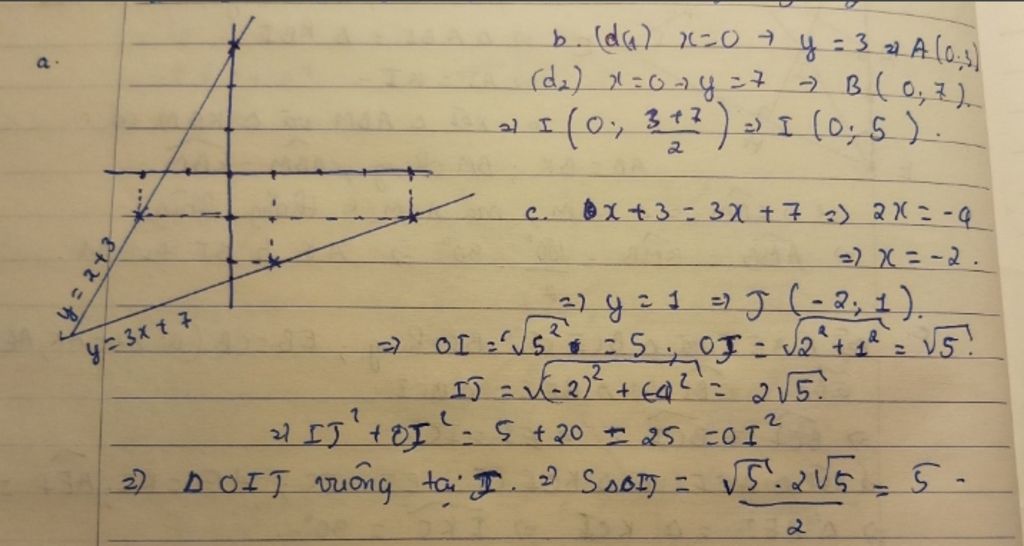 a.
y = x + 3
y = 3x + 7
b. (d1) x=0 → y = 3 => A(0;3)
(d2) x=0 → y=7 → B(0; 7).
=> I (0; \frac{3+7}{2}) => I (0; 5).
c. x + 3 = 3x + 7 => 2x = -4
=> x = -2.
=> y = 1 => J (-2; 1).
=> OI = √5² = 5; OJ = √2² + 1² = √5.
IJ = √(-2)² + (4)² = 2√5.
=> IJ² + OI² = 5 + 20 = 25 = OI²
=> Δ OIJ vuông tại J. => SΔOIJ = \frac{√5 . 2√5}{2} = 5